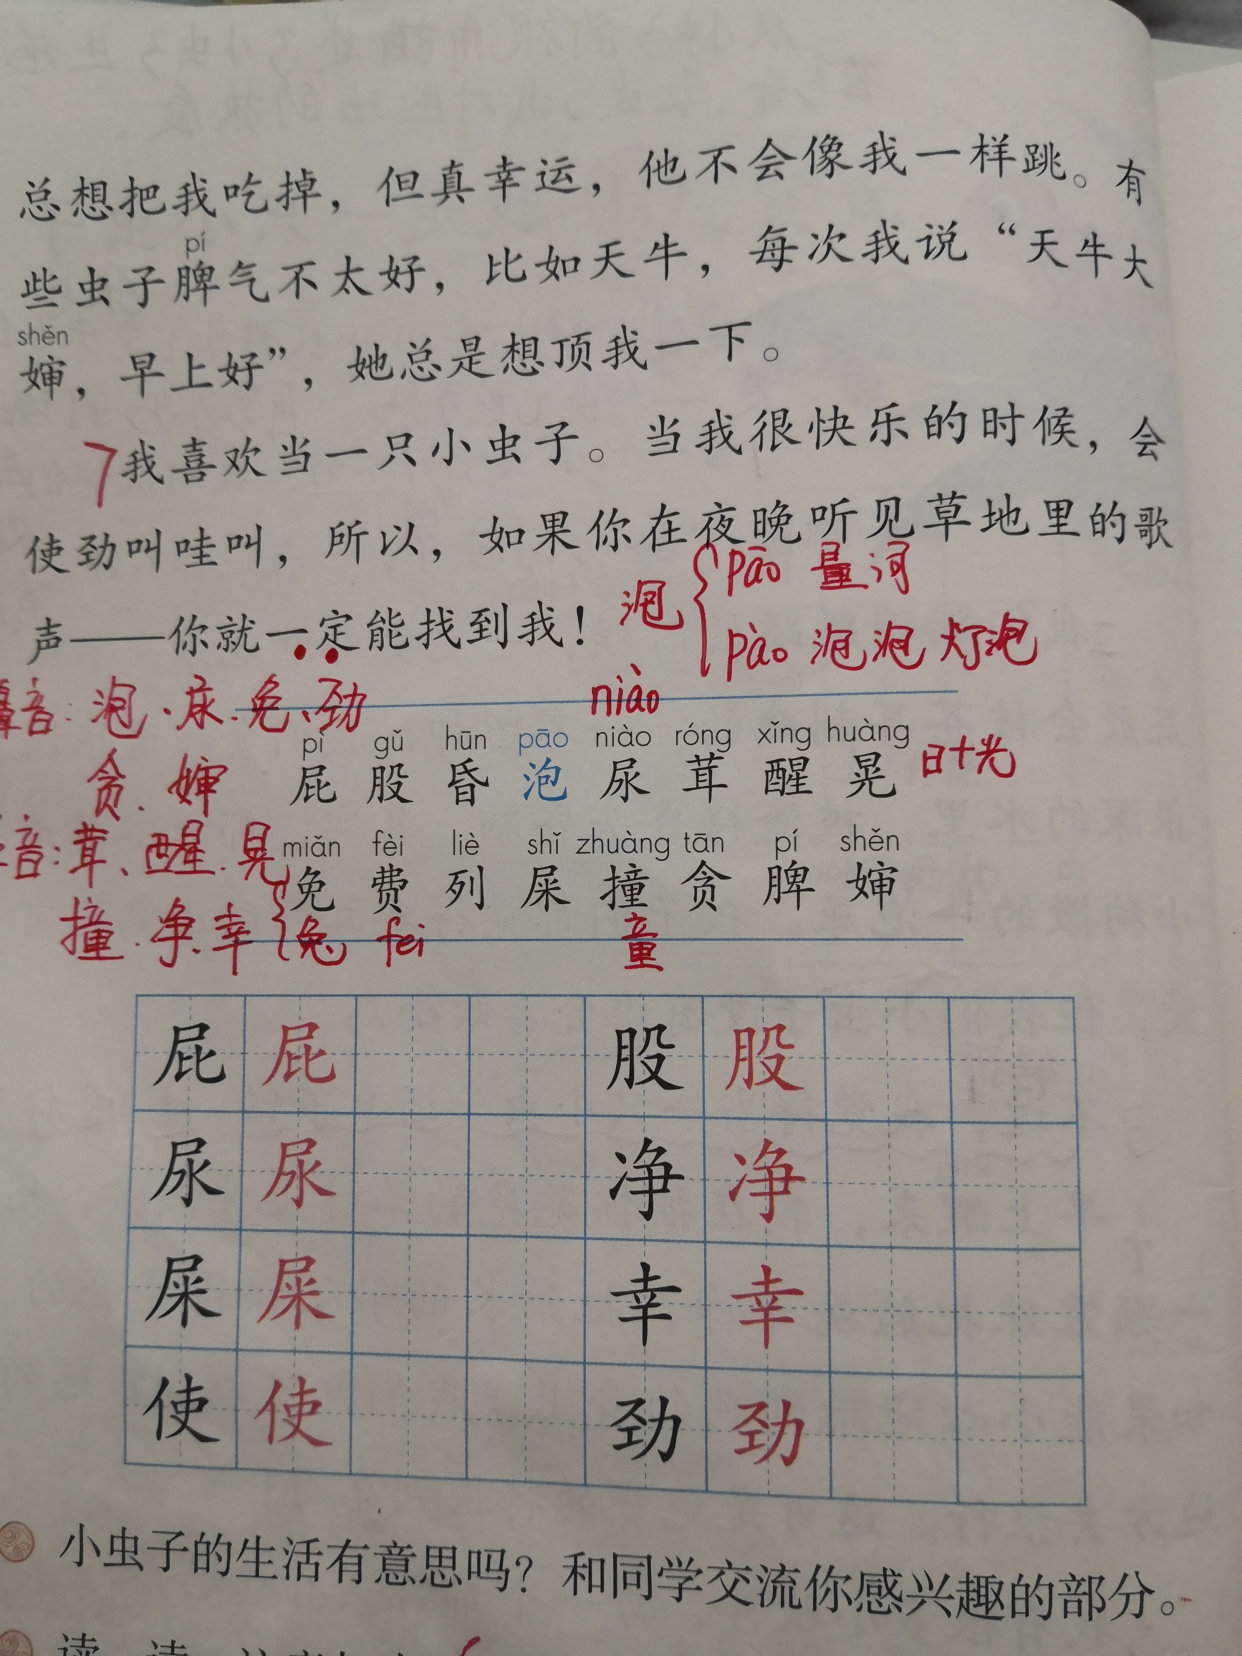 总想把我吃掉，但真幸运，他不会像我一样跳。有
pí
些虫子脾气不太好，比如天牛，每次我说“天牛大
shěn
婶，早上好”，她总是想顶我一下。
7我喜欢当一只小虫子。当我很快乐的时候，会
使劲叫哇叫，所以，如果你在夜晚听见草地里的歌
声——你就一定能找到我！
泡 pāo 量词
pào 泡泡 灯泡
音：泡、尿、免、劲
贪、婶
音：茸、醒、晃
撞、净、幸
niào
pì gǔ hūn pāo niào róng xǐng huàng
屁 股 昏 泡 尿 茸 醒 晃 日+光
miǎn fèi liè shǐ zhuàng tān pí shěn
免 费 列 屎 撞 贪 脾 婶
兔 fei 童
屁 屁 股 股
尿 尿 净 净
屎 屎 幸 幸
使 使 劲 劲
小虫子的生活有意思吗？和同学交流你感兴趣的部分。